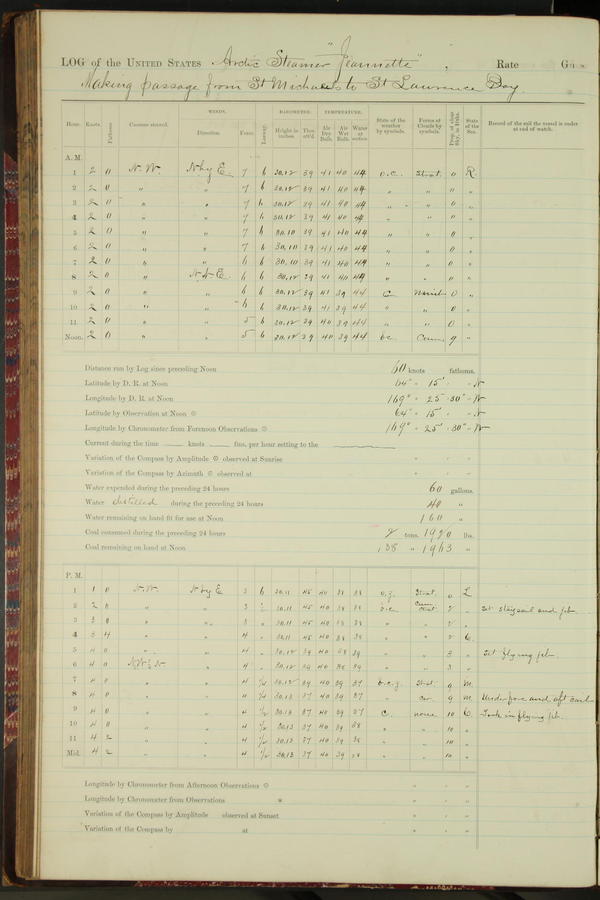 LOG of the UNITED STATES Arctic Steamer "Jeannette", Rate
Making passage from St Michaels to St Lawrence Bay.
Hour. Knots. Fathoms. Courses steered. WINDS. Direction. Force. Leeway. BAROMETER. Height in inches. Ther. att'd. TEMPERATURE. Air Dry Bulb. Air Wet Bulb. Water at surface. State of the weather by symbols. Forms of Clouds by symbols. Prop. of clear Sky, in 10ths. State of the Sea. Record of the sail the vessel is under at end of watch.
A. M.
1 2 0 N.W. N by E. 7 6 30.12 39 41 40 44 o.c. Strat. 0 R.
2 2 0 " " 7 6 30.12 39 41 40 44 " " 0 "
3 2 0 " " 7 6 30.12 39 41 40 44 " " 0 "
4 2 0 " " 7 6 30.12 39 41 40 44 " " 0 "
5 2 0 " " 7 6 30.10 39 41 40 44 " " 0 "
6 2 0 " " 7 6 30.10 39 41 40 44 " " 0 "
7 2 0 " " 6 6 30.10 39 41 40 44 " " 0 "
8 2 0 " N by E. 6 6 30.12 39 41 40 44 " " 0 "
9 2 0 " " 6 6 30.12 39 41 39 44 c. 0 "
10 2 0 " " 6 6 30.12 39 41 39 44 " " 0 "
11 2 0 " " 5 6 30.12 39 40 39 44 " " 0 "
Noon. 2 0 " " 5 6 30.12 39 40 39 44 b.c. Cum. 9 "
Distance run by Log since preceding Noon 60 knots fathoms.
Latitude by D. R. at Noon 64° 15' " N
Longitude by D. R. at Noon 169° 25' 30" W
Latitude by Observation at Noon 64° 15' " N
Longitude by Chronometer from Forenoon Observations 169° 25' 30" W
Current during the time knots fms. per hour setting to the
Variation of the Compass by Amplitude observed at Sunrise
Variation of the Compass by Azimuth observed at
Water expended during the preceding 24 hours 60 gallons.
Water distilled during the preceding 24 hours 40 "
Water remaining on hand fit for use at Noon 160 "
Coal consumed during the preceding 24 hours 2 tons. lbs.
Coal remaining on hand at Noon 138 "
P. M.
1 1 0 N.W. N by E 3 6 30.11 45 40 38 38 Strat. 0 L
2 2 0 " " 3 30.11 45 40 38 38 " Set staysail and jib.
3 3 0 " " 3 " 30.11 45 40 38 38 " " "
4 3 4 " " 4 " 30.11 45 40 38 39 " " 2
5 4 0 " " 4 " 30.12 39 40 38 39 " " 3 " Set flying jib.
6 4 0 " 4 " 30.12 39 40 38 39 " " 3 "
7 4 0 " " 4 1/4 30.12 39 40 39 37 Strat. 9 M.
8 4 0 " " 4 1/4 30.13 37 40 39 37 " 9 M. Under fore and aft sail
9 4 0 " " 4 30.13 37 40 39 37 c. none 10 Took in flying jib.
10 4 0 " " 4 30.13 37 40 39 38 " " 10 "
11 4 2 " " 4 30.13 37 40 39 38 " " 10 "
Mid. 4 2 " " 4 30.13 37 40 39 38 " " 10 "
Longitude by Chronometer from Afternoon Observations
Longitude by Chronometer from Observations *
Variation of the Compass by Amplitude observed at Sunset
Variation of the Compass by at